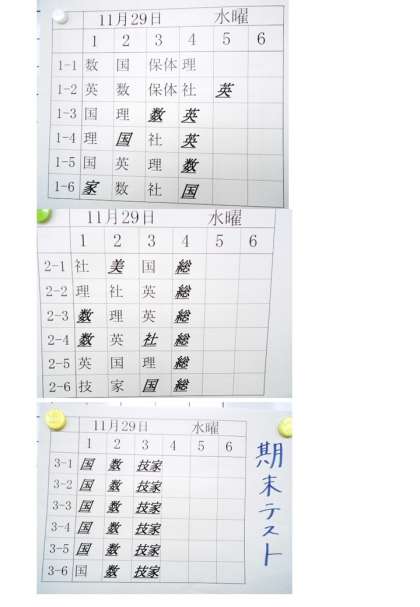 11月29日 水曜
1 2 3 4 5 6
1-1 数 国 保体 理
1-2 英 数 保体 社 英
1-3 国 理 数 英
1-4 理 国 社 英
1-5 国 英 理 数
1-6 家 数 社 国
11月29日 水曜
1 2 3 4 5 6
2-1 社 美 国 総
2-2 理 社 英 総
2-3 数 理 英 総
2-4 数 英 社 総
2-5 英 国 理 総
2-6 技 家 国 総
11月29日 水曜
1 2 3 4 5 6
3-1 国 数 技家
3-2 国 数 技家
3-3 国 数 技家
3-4 国 数 技家
3-5 国 数 技家
3-6 国 数 技家
期末テスト